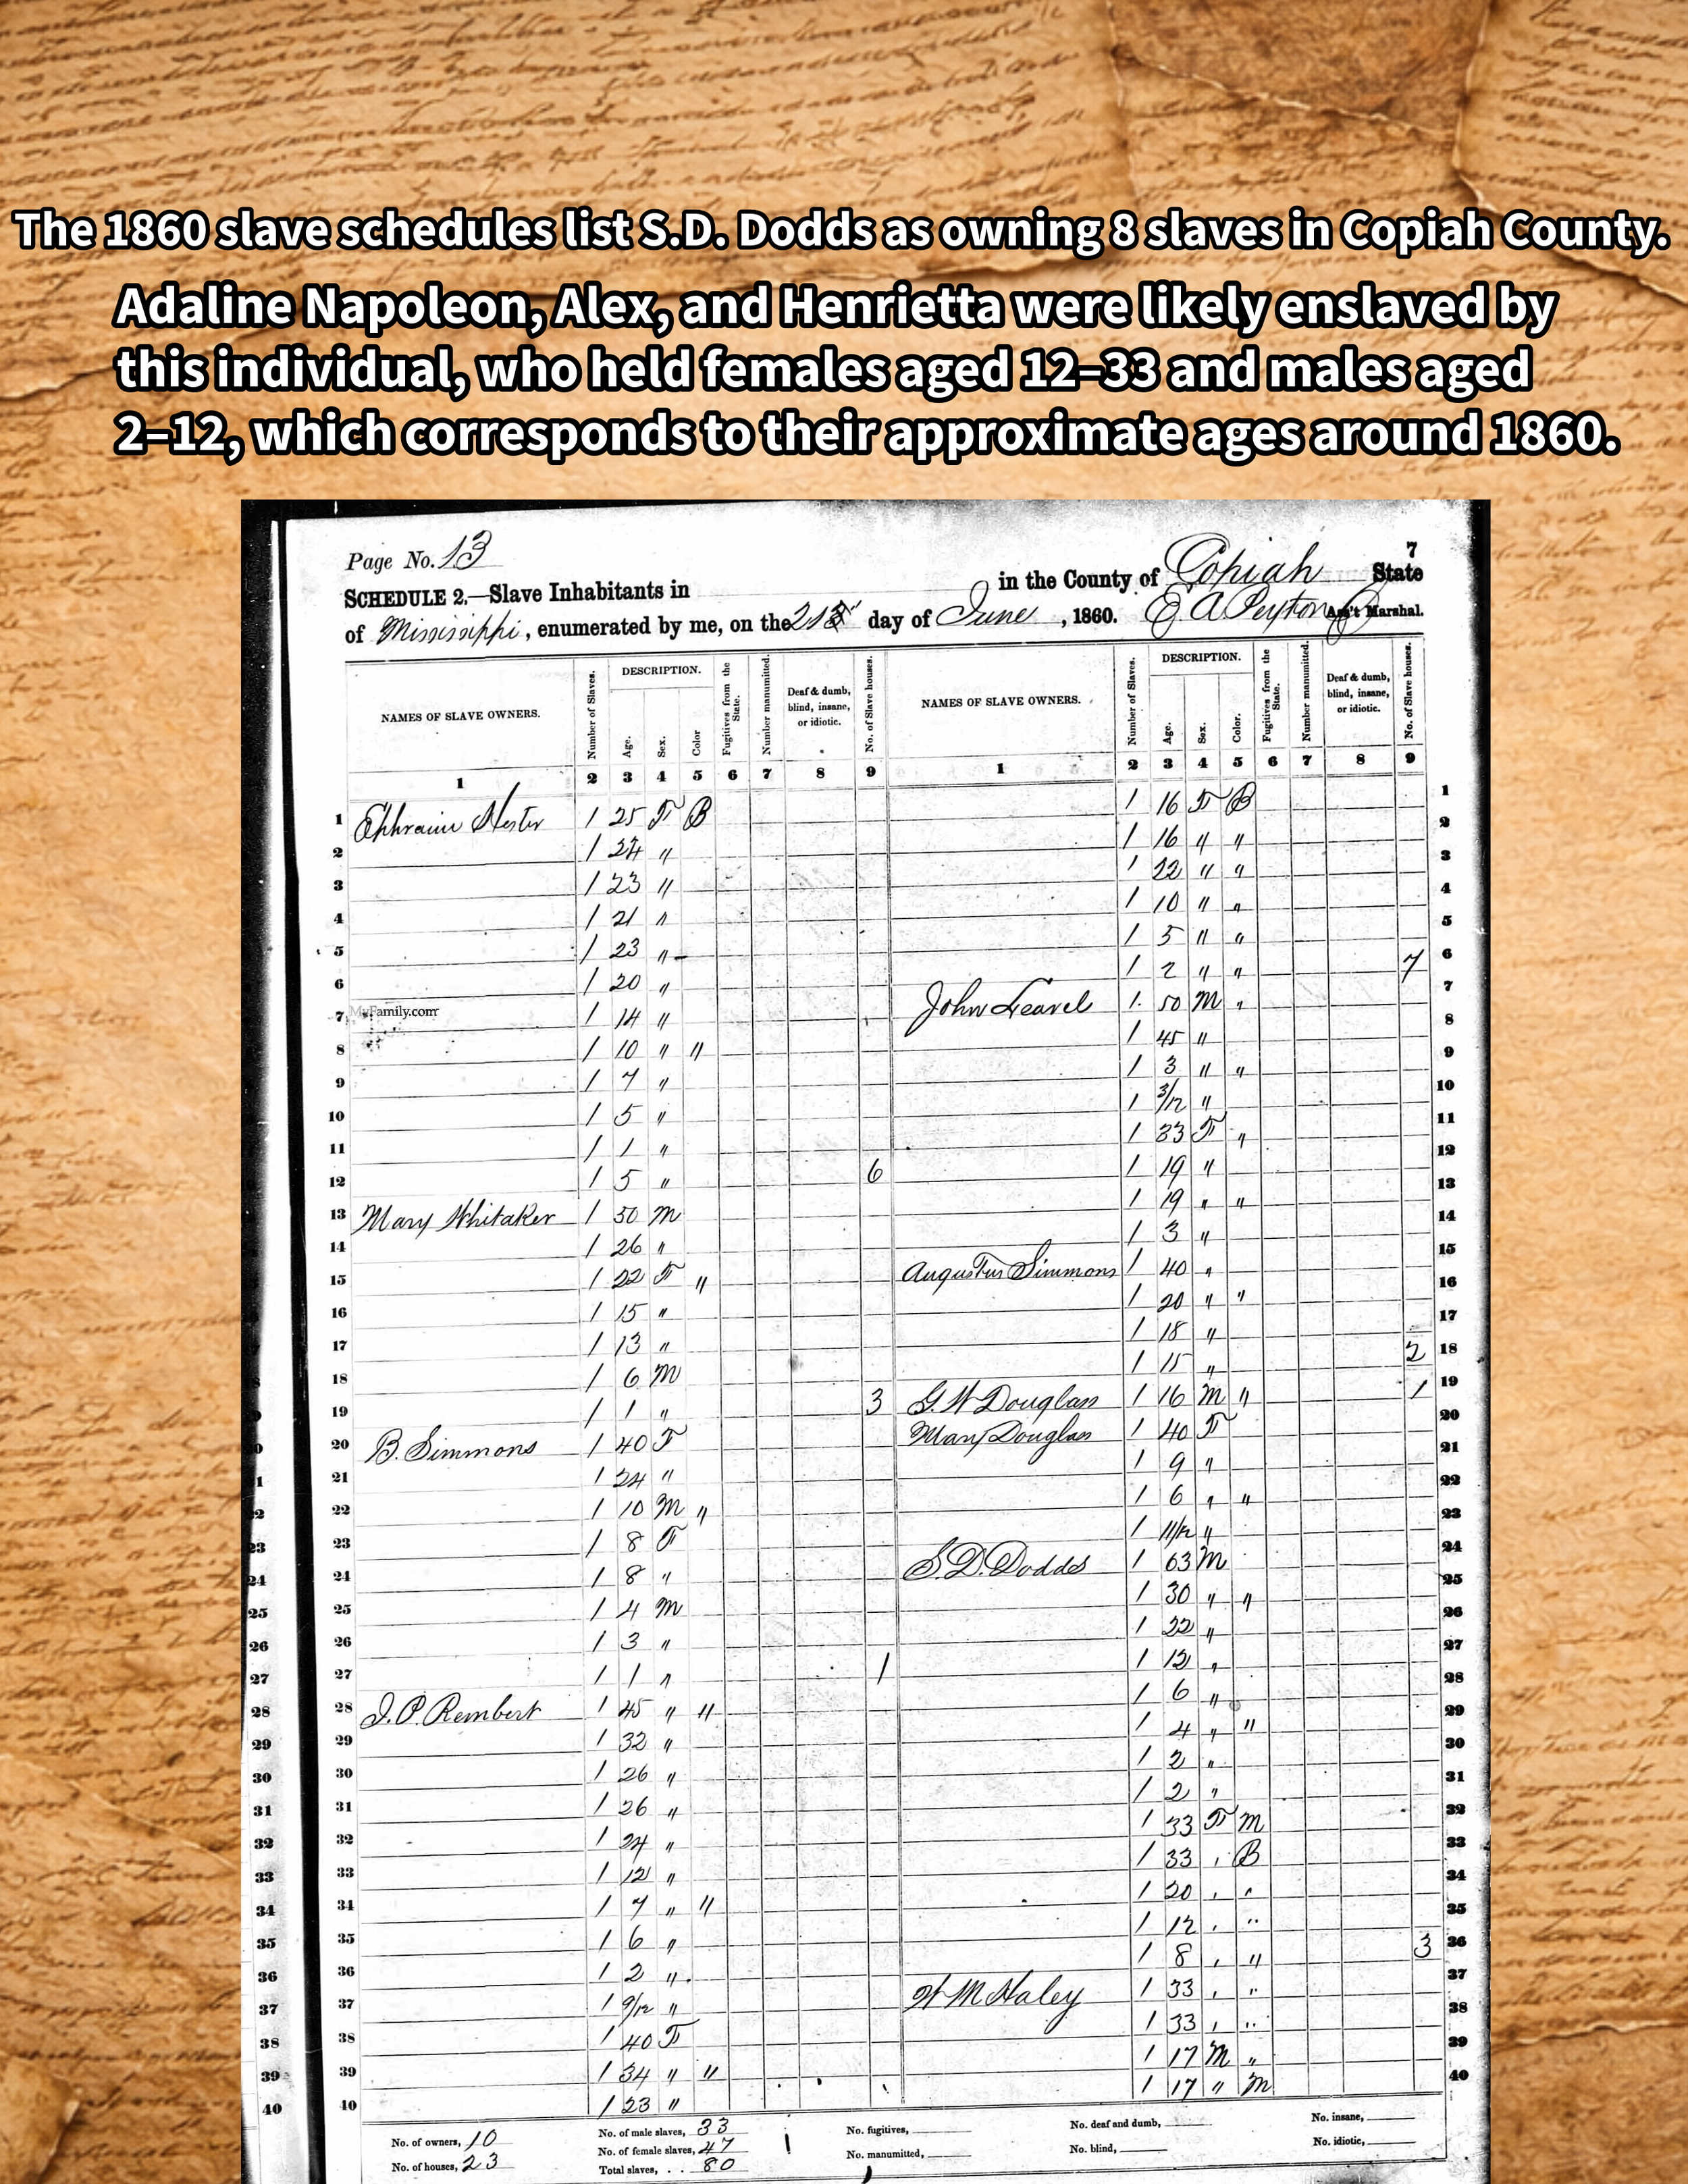 The 1860 slave schedules list S.D. Dodds as owning 8 slaves in Copiah County.
Adaline Napoleon, Alex, and Henrietta were likely enslaved by
this individual, who held females aged 12–33 and males aged
2–12, which corresponds to their approximate ages around 1860.
Page No. 13
7
SCHEDULE 2.—Slave Inhabitants in in the County of Copiah State
of Mississippi, enumerated by me, on the day of June, 1860. Peyton Ass't Marshal.
NAMES OF SLAVE OWNERS. Number of Slaves. DESCRIPTION. Age. Sex. Color Fugitives from the State. Number manumitted. Deaf & dumb, blind, insane, or idiotic. No. of Slave houses. NAMES OF SLAVE OWNERS. Number of Slaves. DESCRIPTION. Age. Sex. Color. Fugitives from the State. Number manumitted. Deaf & dumb, blind, insane, or idiotic. No. of Slave houses.
1 2 3 4 5 6 7 8 9 1 2 3 4 5 6 7 8 9
1 Ephraim Hester 1 25 F B
2 1 24 "
3 1 23 "
4 1 21 "
5 1 23 "
6 1 20 "
7 MyFamily.com 1 14 "
8 1 10 " "
9 1 7 "
10 1 5 "
11 1 1 "
12 1 5 " 6
13 Mary Whitaker 1 50 M
14 1 26 "
15 1 22 F "
16 1 15 "
17 1 13 "
18 1 6 M
19 1 1 " 3
20 B. Simmons 1 40 F
21 1 24 "
22 1 10 M "
23 1 8 F
24 1 8 "
25 1 4 M
26 1 3 "
27 1 1 " 1
28 J. P. Rembert 1 45 " "
29 1 32 "
30 1 26 "
31 1 26 "
32 1 24 "
33 1 12 "
34 1 7 " "
35 1 6 "
36 1 2 "
37 1 9/12 "
38 1 40 F
39 1 34 " "
40 1 23 "
1 16 F B 1
1 16 " " 2
1 22 " " 3
1 10 " " 4
1 5 " " 5
1 2 " " 7 6
John Leavel 1 50 M " 7
1 45 " 8
1 3 " " 9
1 3/12 " 10
1 33 F " 11
1 19 " 12
1 19 " " 13
1 3 " 14
Augustus Simmons 1 40 " 15
1 20 " " 16
1 18 " 17
1 15 " 2 18
G. W Douglas 1 16 M " 1 19
Mary Douglas 1 40 F 20
1 9 " 21
1 6 " " 22
1 11/12 " 23
S. D. Dodds 1 63 M 24
1 30 " " 25
1 22 " 26
1 12 " 27
1 6 " 28
1 4 " " 29
1 2 " 30
1 2 " 31
1 33 F M 32
1 33 " B 33
1 20 " " 34
1 12 " " 35
1 8 " " 3 36
W M Haley 1 33 " " 37
1 33 " " 38
1 17 M " 39
1 17 " M 40
No. of owners, 10 No. of male slaves, 33 No. fugitives, No. deaf and dumb, No. insane,
No. of houses, 23 No. of female slaves, 47 No. manumitted, No. blind, No. idiotic,
Total slaves, . . 80